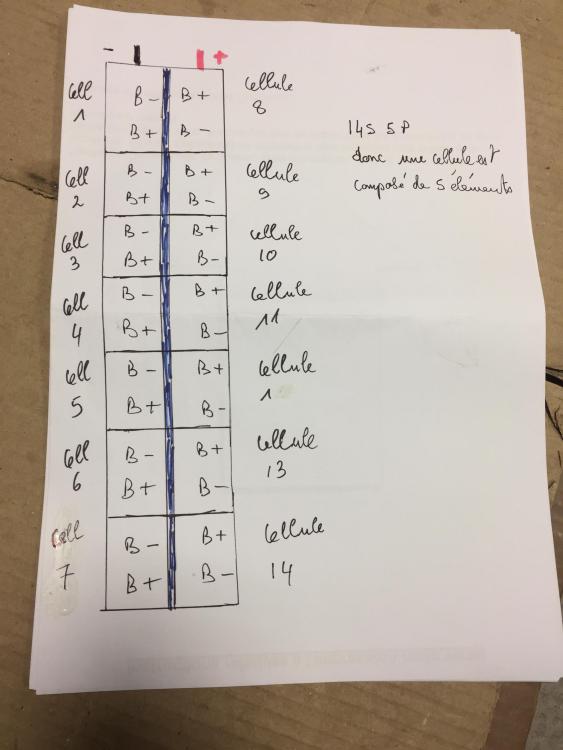 - +
Cell
1
B- B+
B+ B-
Cellule
8
14S 5P
donc une cellule est
composé de 5 éléments
Cell
2
B- B+
B+ B-
Cellule
9
Cell
3
B- B+
B+ B-
Cellule
10
Cell
4
B- B+
B+ B-
Cellule
11
Cell
5
B- B+
B+ B-
Cellule
1
Cell
6
B- B+
B+ B-
Cellule
13
Cell
7
B- B+
B+ B-
Cellule
14